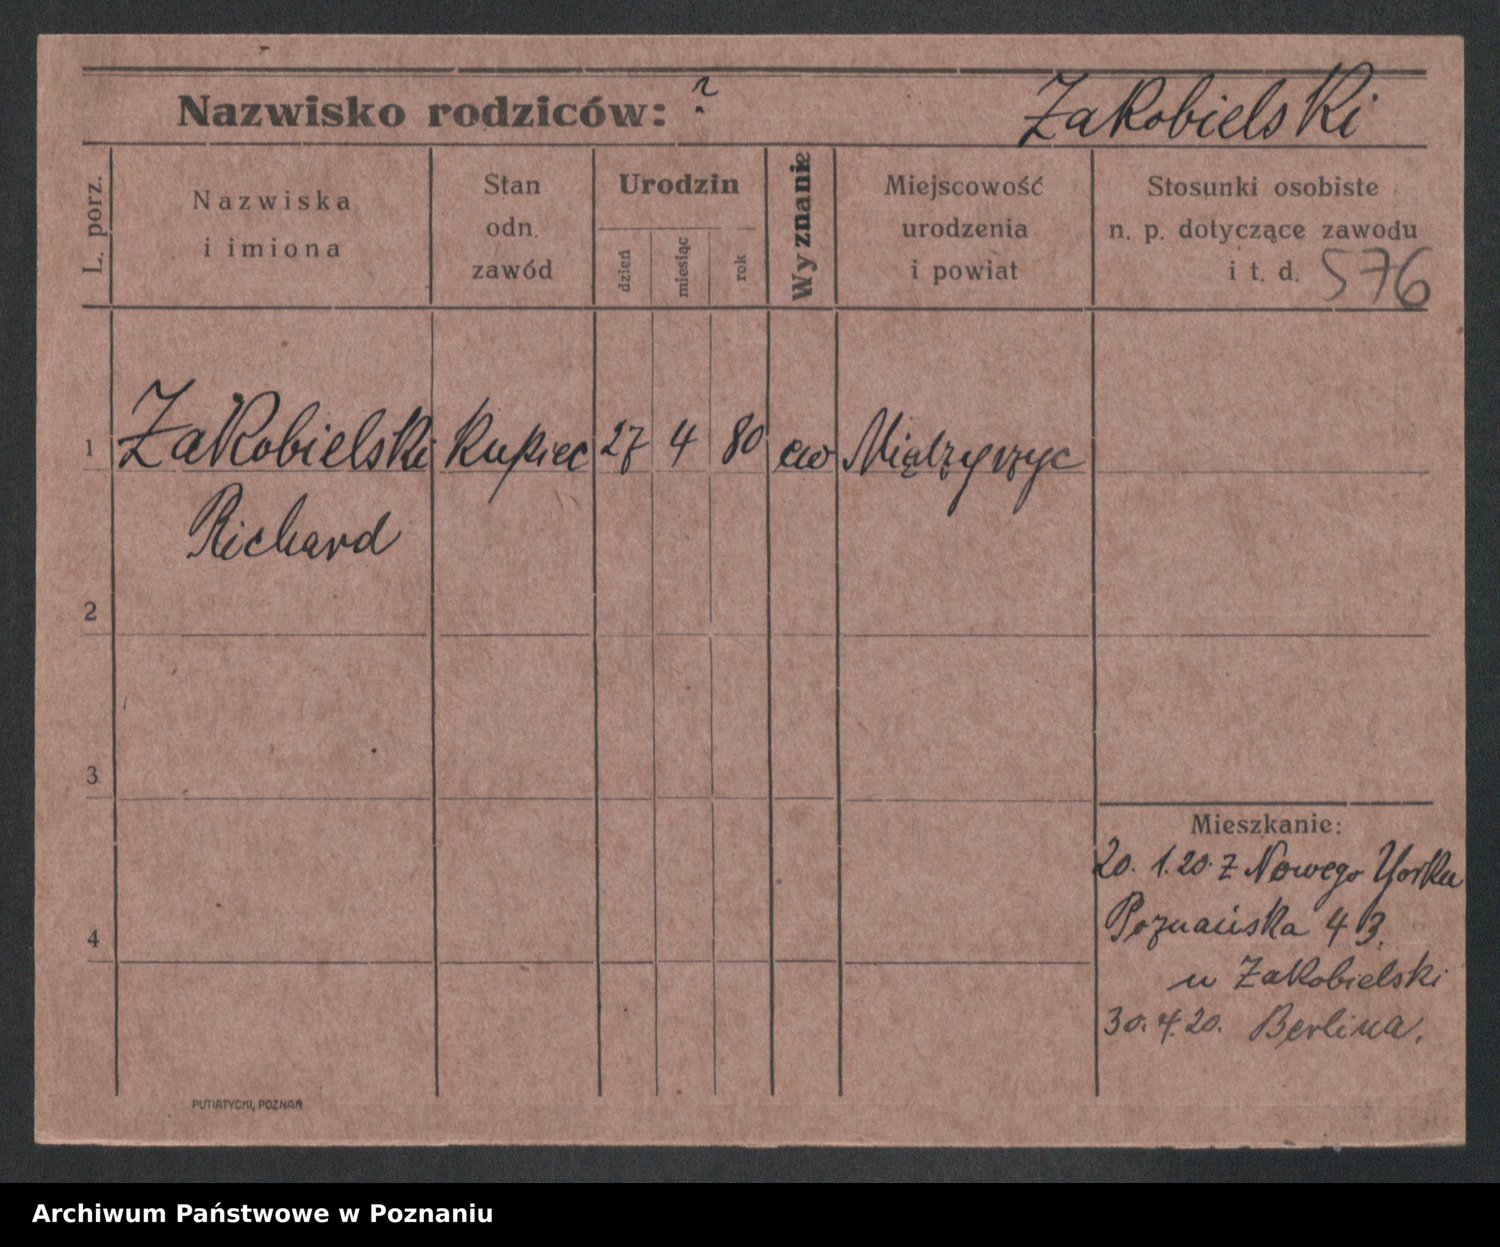 Nazwisko rodziców: ? Zakobielski
L. porz.
Nazwiska
i imiona
Stan
odn.
zawód
Urodzin
dzień
miesiąc
rok
Wyznanie
Miejscowość
urodzenia
i powiat
Stosunki osobiste
n. p. dotyczące zawodu
i t. d. 576
1 Zakobielski Kupiec 27 4 80 ew Międzyrzyc
Richard
2
3
4
Mieszkanie:
20. 1. 20. z Nowego Yorku
Poznańska 43.
u Zakobielski
30. 4. 20. Berlina.
PUTIATYCKI, POZNAŃ
Archiwum Państwowe w Poznaniu